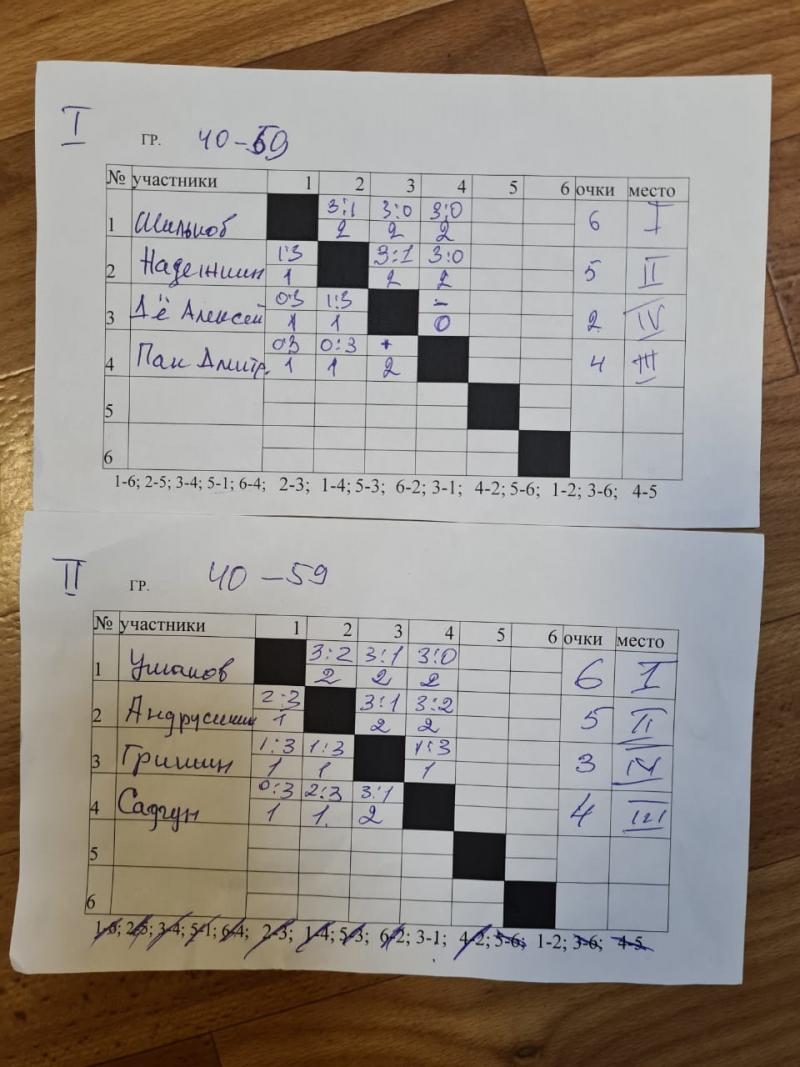 I ГР. 40-59
№ участники 1 2 3 4 5 6 очки место
3:1 3:0 3:0
1 Шильков 2 2 2 6 I
1:3 3:1 3:0
2 Надежкин 1 2 2 5 II
0:3 1:3 -
3 Дё Алексей 1 1 0 2 IV
0:3 0:3 +
4 Пак Дмитр. 1 1 2 4 III
5
6
1-6; 2-5; 3-4; 5-1; 6-4; 2-3; 1-4; 5-3; 6-2; 3-1; 4-2; 5-6; 1-2; 3-6; 4-5
II ГР. 40-59
№ участники 1 2 3 4 5 6 очки место
3:2 3:1 3:0
1 Ушаков 2 2 2 6 I
2:3 3:1 3:2
2 1 2 2 5 II
1:3 1:3 1:3
3 Гришин 1 1 1 3 IV
0:3 2:3 3:1
4 Садгун 1 1. 2 4 III
5
6
1-6; 2-5; 3-4; 5-1; 6-4; 2-3; 1-4; 5-3; 6-2; 3-1; 4-2; 5-6; 1-2; 3-6; 4-5